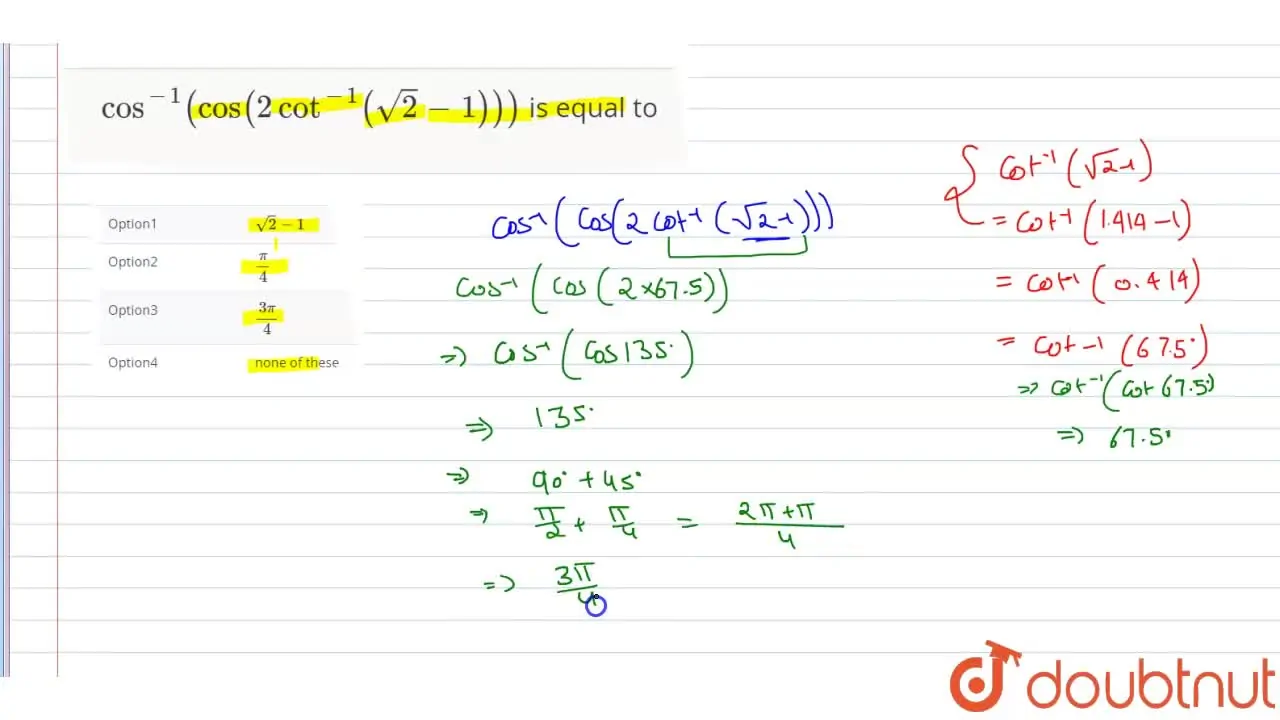 cos⁻¹(cos(2 cot⁻¹(√2 − 1))) is equal to
Option1 √2 − 1
Option2 π/4
Option3 3π/4
Option4 none of these
cos⁻¹(cos(2 cot⁻¹(√2-1)))
cos⁻¹(cos(2×67.5))
=> cos⁻¹(cos 135°)
=> 135°
=> 90° + 45°
=> π/2 + π/4 = 2π+π/4
=> 3π/4
cot⁻¹(√2-1)
= cot⁻¹(1.414-1)
= cot⁻¹(0.414)
= cot-1(67.5°)
=> cot⁻¹(cot 67.5°)
=> 67.5°
doubtnut